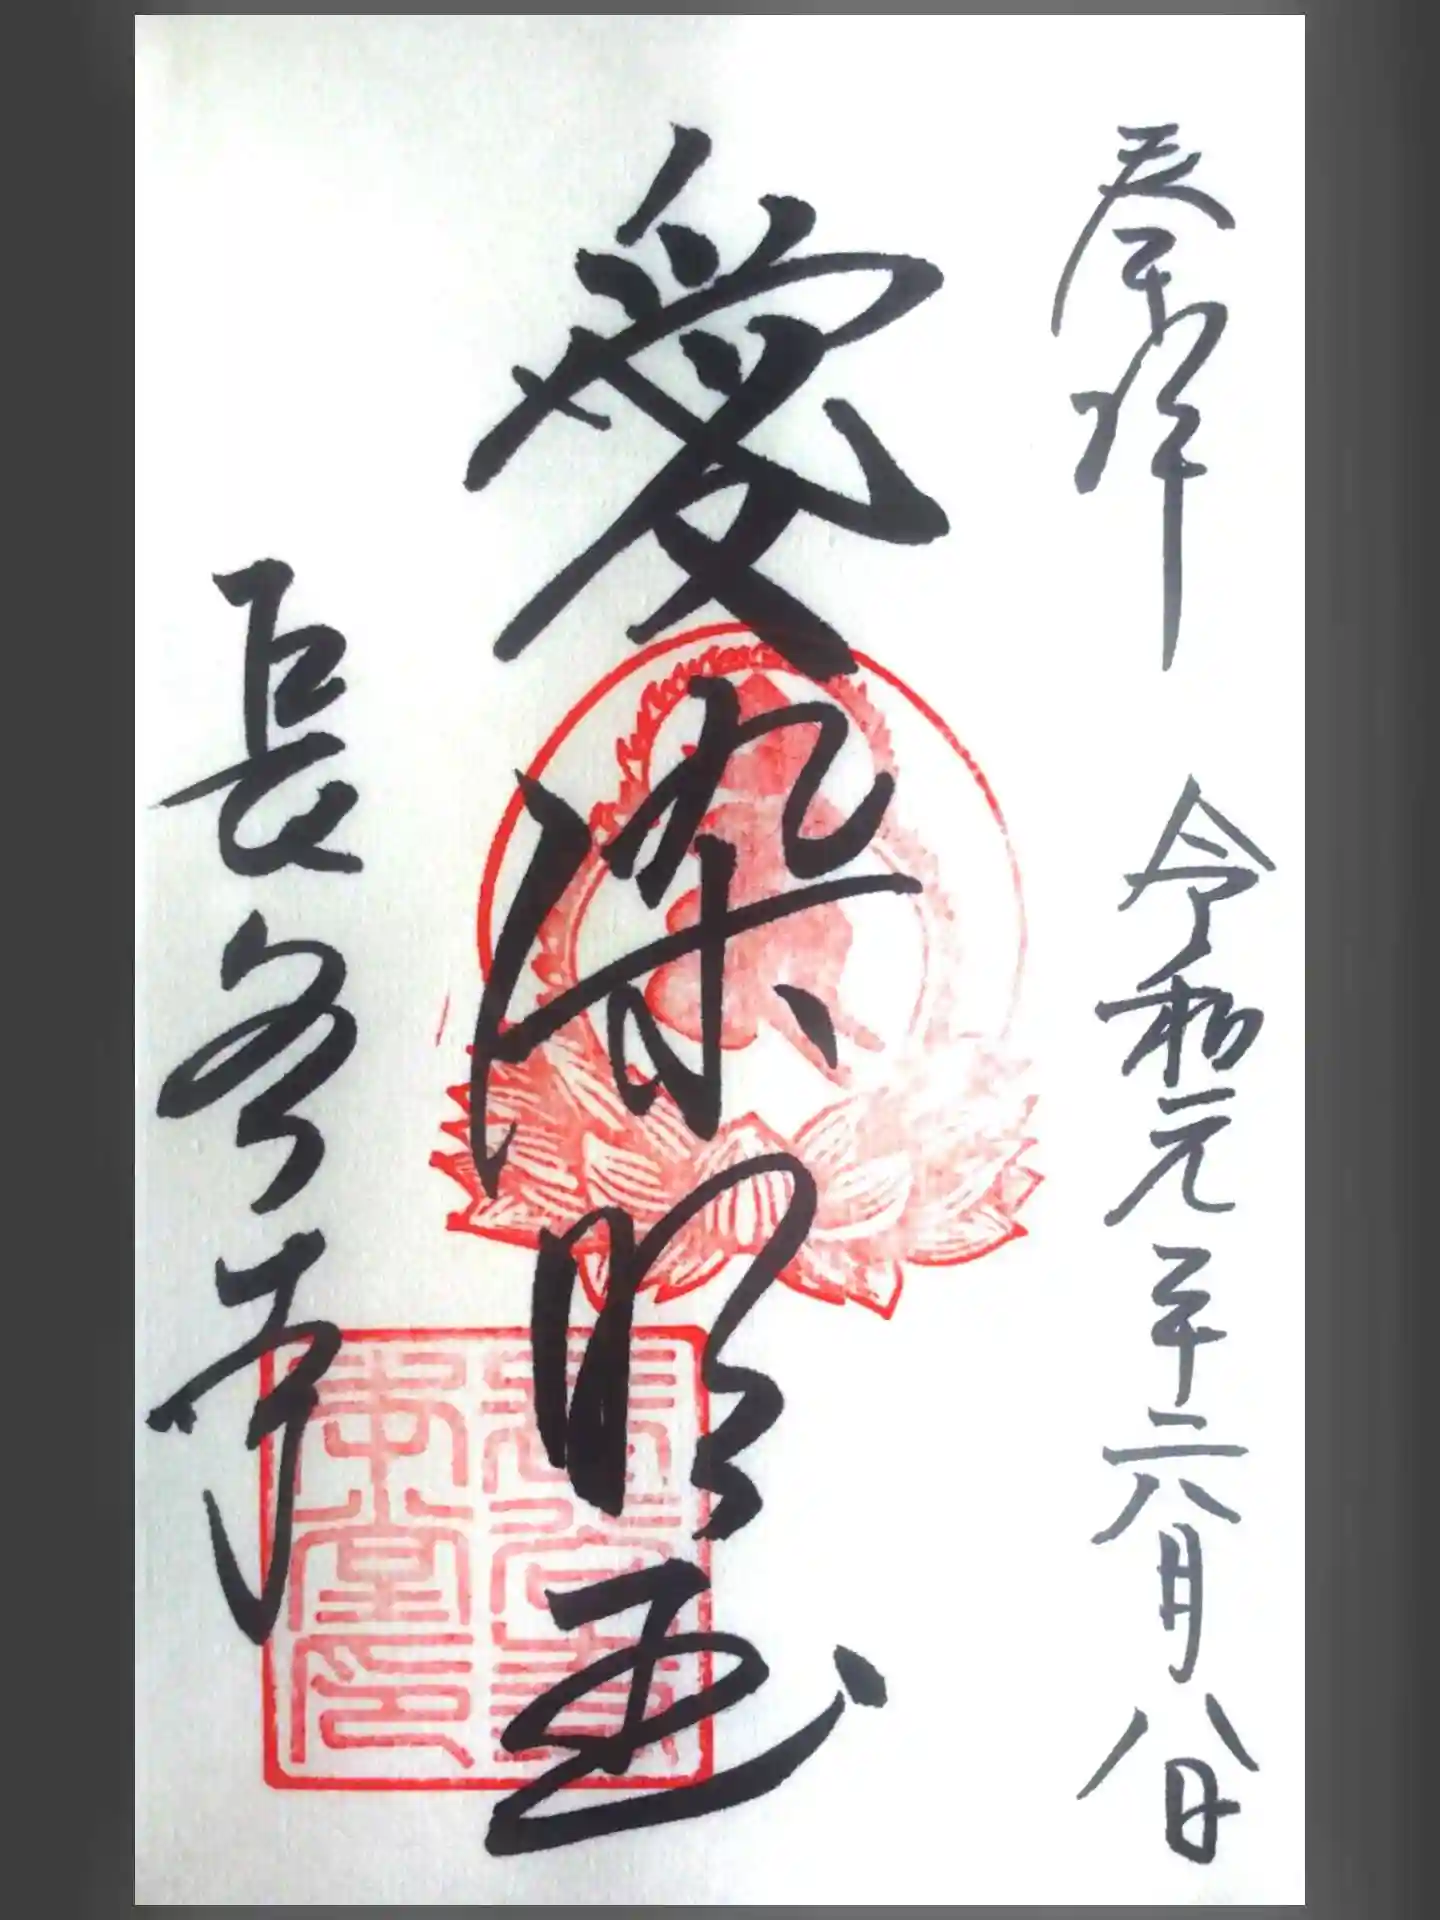 奉拝 令和元年六月八日
愛染明王
長谷寺
長谷寺本堂印